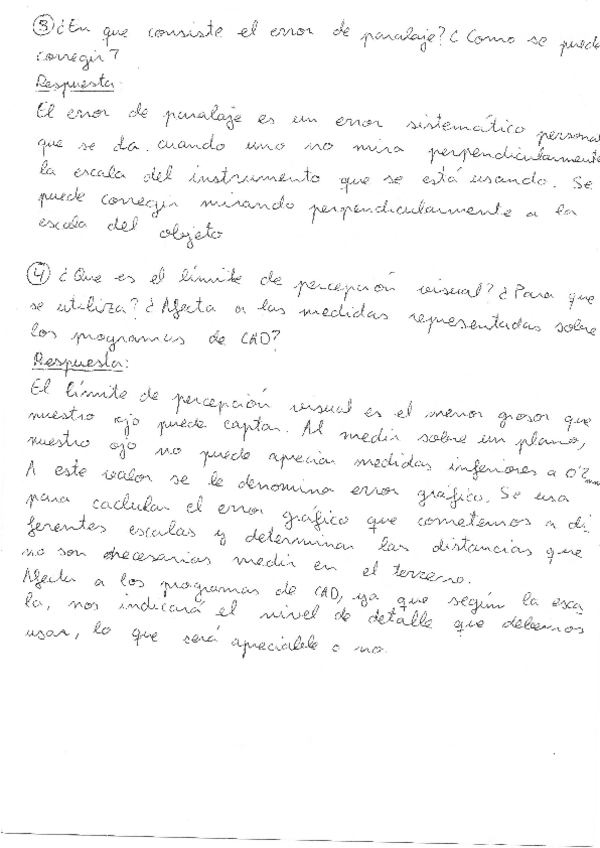 ③ ¿En que consiste el error de paralaje? ¿Como se puede
corregir?
Respuesta:
El error de paralaje es un error sistemático personal
que se da cuando uno no mira perpendicularmente
la escala del instrumento que se está usando. Se
puede corregir mirando perpendicularmente a la
escala del objeto
④ ¿Que es el límite de percepción visual? ¿Para que
se utiliza? ¿Afecta a las medidas representadas sobre
los programas de CAD?
Respuesta:
El límite de percepción visual es el menor grosor que
nuestro ojo puede captar. Al medir sobre un plano,
nuestro ojo no puede apreciar medidas inferiores a 0'2mm
A este valor se le denomina error gráfico. Se usa
para caclular el error gráfico que cometemos a di-
ferentes escalas y determinar las distancias que
no son necesarias medir en el terreno.
Afecta a los programas de CAD, ya que según la esca-
la, nos indicará el nivel de detalle que debemos
usar, lo que será apreciable o no.